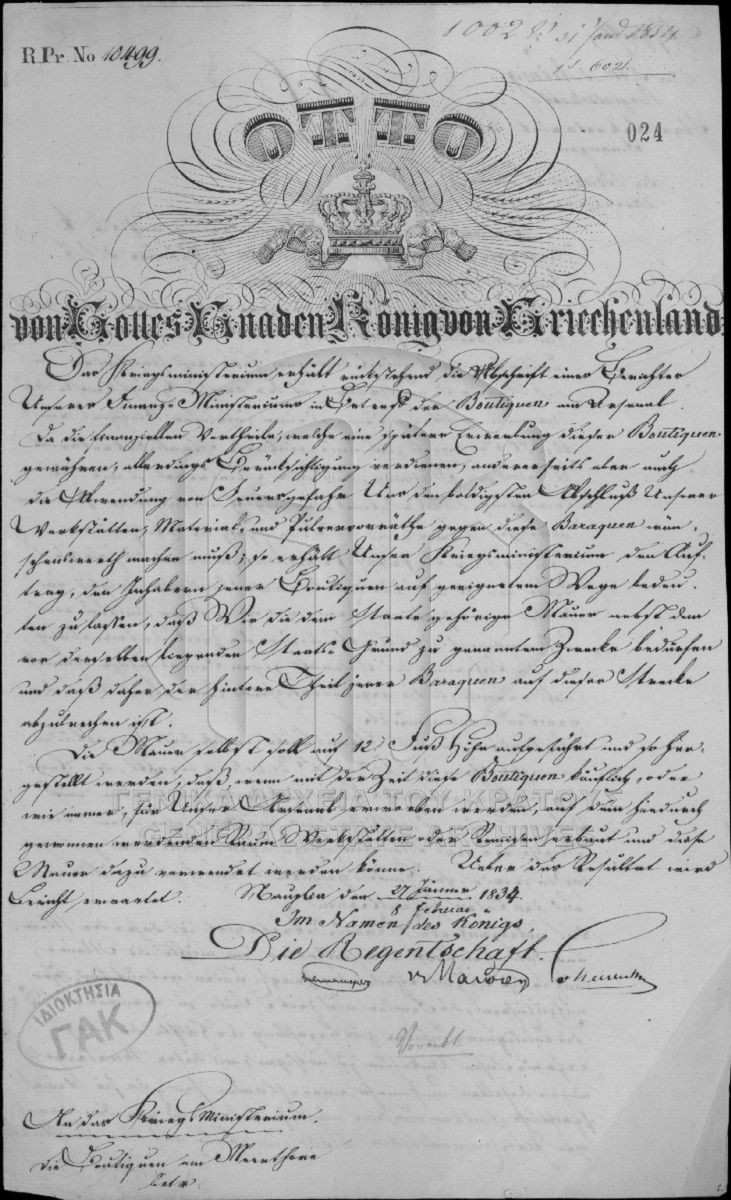 R.Pr. No 10499.
1002
31 Jan. 1834
602
024
OTTO
von Gottes Gnaden König von Griechenland
Das Kriegsministerium erhält rückstehend die Abschrift eines Berichtes
Unseres Finanz-Ministeriums in Betreff der Boutiquen am Arsenal.
Da die finanziellen Vortheile, welche eine spätere Erwerbung dieser Boutiquen
gewähren, allerdings Berücksichtigung verdienen, andererseits aber auch
die Abwendung von Feuersgefahr Uns den baldigsten Abschluß Unserer
Werkstätten, Material- und Pulvervorräthe gegen diese Baraquen wün-
schenswerth machen muß; so erhält Unser Kriegsministerium den Auf-
trag, den Inhabern jener Boutiquen auf geeignetem Wege bedeu-
ten zu lassen, daß Wir die dem Staate gehörige Mauer nebst dem
vor derselben liegenden Staats-Grund zu genanntem Zwecke bedürfen
und daß daher der hintere Theil jener Baraquen auf dieser Strecke
abzubrechen ist.
Die Mauer selbst soll auf 12 Fuß Höhe aufgeführt und so her-
gestellt werden, daß, wenn mit der Zeit diese Boutiquen käuflich, oder
wie immer, für Unser Arsenal erworben werden, auf dem hiedurch
gewonnen werdenden Raum Werkstätten oder Remisen erbaut und diese
Mauer dazu verwendet werden könne. Ueber das Resultat wird
Bericht erwartet. Nauplia den 27 Jänner 1834.
8 Februar
Im Namen des Königs,
Die Regentschaft.
v Maurer
ΓΕΝΙΚΑ ΑΡΧΕΙΑ ΤΟΥ ΚΡΑΤΟΥΣ
GENERAL STATE ARCHIVES
ΙΔΙΟΚΤΗΣΙΑ
ΓΑΚ
An das Kriegsministerium.
Die Boutiquen am Meerthore
betr.